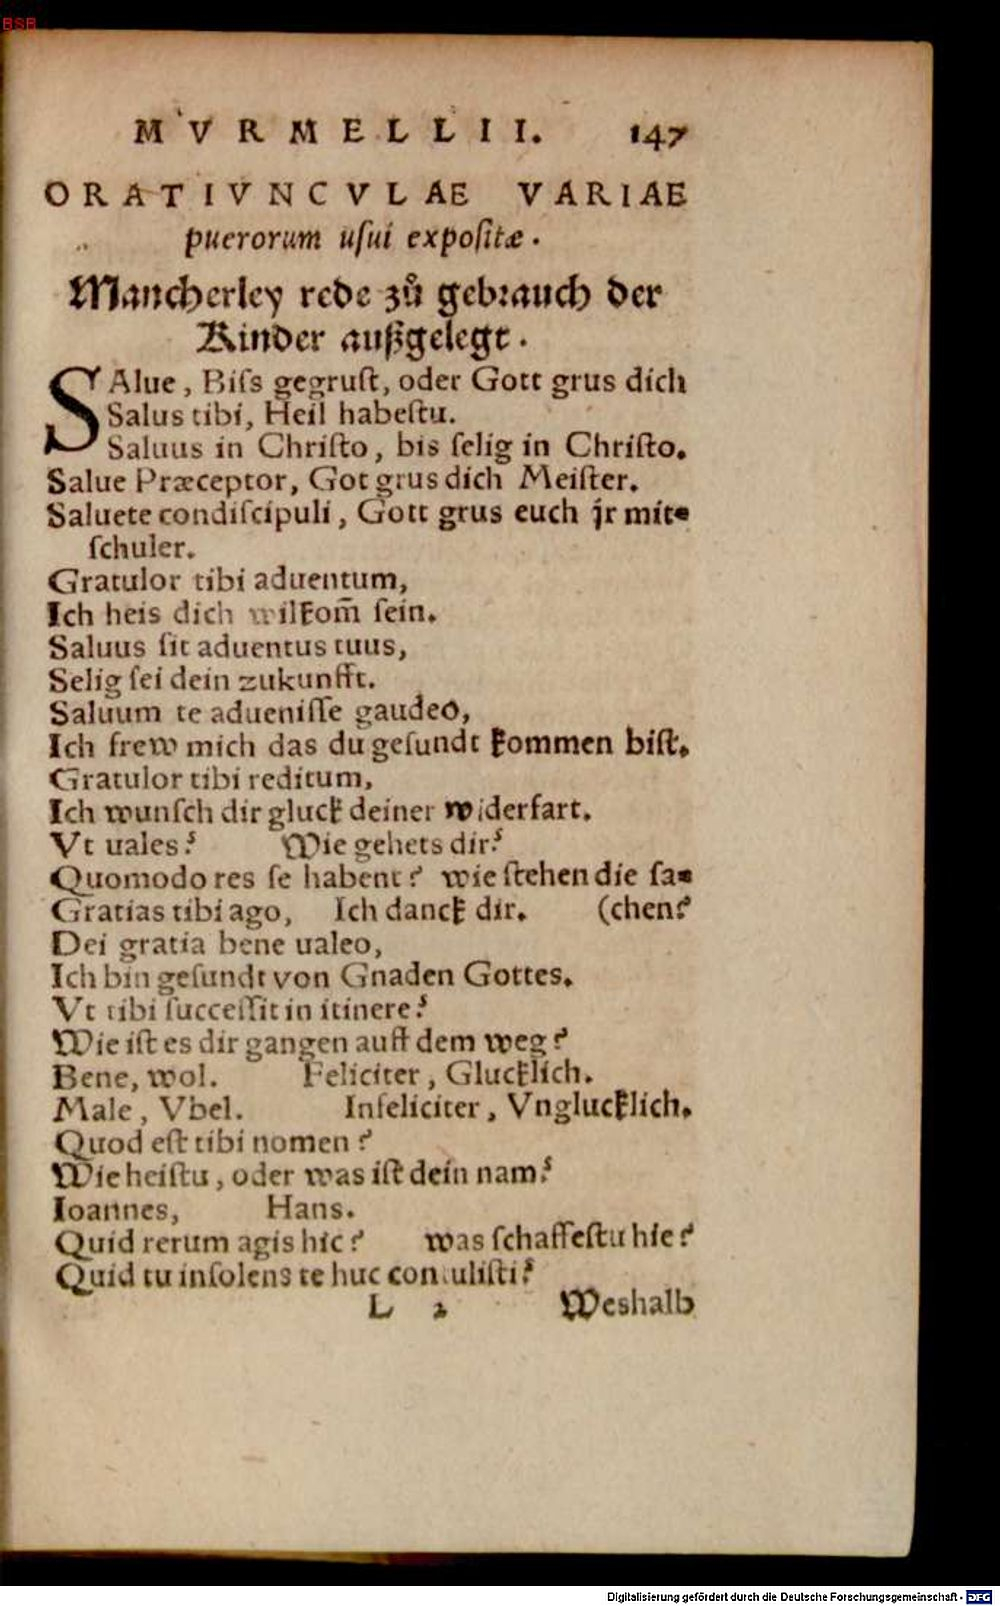 BSB
MVRMELLII. 147
ORATIVNCVLAE VARIAE
puerorum uſui expoſitæ.
Mancherley rede zů gebrauch der
Kinder außgelegt.
SAlue, Biſs gegruſt, oder Gott grus dich
Salus tibi, Heil habeſtu.
Saluus in Chriſto, bis ſelig in Chriſto.
Salue Præceptor, Got grus dich Meiſter.
Saluete condiſcipuli, Gott grus euch jr mit⸗
ſchuler.
Gratulor tibi aduentum,
Ich heis dich wilkom̃ ſein.
Saluus ſit aduentus tuus,
Selig ſei dein zukunfft.
Saluum te adueniſſe gaudeo,
Ich frew mich das du geſundt kommen biſt.
Gratulor tibi reditum,
Ich wunſch dir gluck deiner widerfart.
Vt uales? Wie gehets dir?
Quomodo res ſe habent? wie ſtehen die ſa⸗
Gratias tibi ago, Ich danck dir. (chen?
Dei gratia bene ualeo,
Ich bin geſundt von Gnaden Gottes.
Vt tibi ſucceſſit in itinere?
Wie iſt es dir gangen auff dem weg?
Bene, wol. Feliciter, Glucklich.
Male, Vbel. Infeliciter, Vnglucklich.
Quod eſt tibi nomen?
Wie heiſtu, oder was iſt dein nam?
Ioannes, Hans.
Quid rerum agis hic? was ſchaffeſtu hie?
Quid tu inſolens te huc contuliſti?
L 2 Weshalb
Digitalisierung gefördert durch die Deutsche Forschungsgemeinschaft - DFG